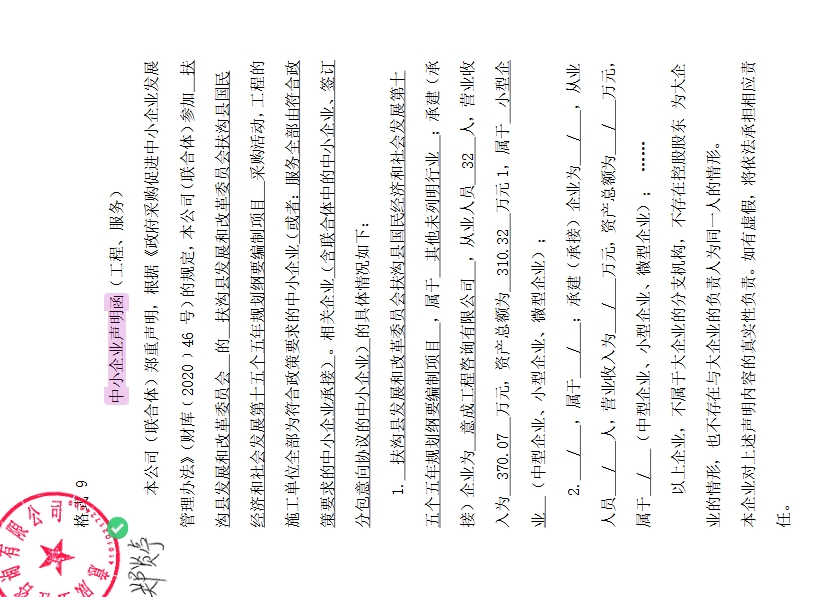 格式 9
中小企业声明函（工程、服务）
本公司（联合体）郑重声明，根据《政府采购促进中小企业发展
管理办法》（财库﹝2020﹞46 号）的规定，本公司（联合体）参加 扶
沟县发展和改革委员会 的 扶沟县发展和改革委员会扶沟县国民
经济和社会发展第十五个五年规划纲要编制项目 采购活动，工程的
施工单位全部为符合政策要求的中小企业（或者：服务全部由符合政
策要求的中小企业承接）。相关企业（含联合体中的中小企业、签订
分包意向协议的中小企业）的具体情况如下：
1. 扶沟县发展和改革委员会扶沟县国民经济和社会发展第十
五个五年规划纲要编制项目 ，属于 其他未列明行业 ；承建（承
接）企业为 意成工程咨询有限公司 ，从业人员 32 人，营业收
入为 370.07 万元，资产总额为 310.32 万元1，属于 小型企
业 （中型企业、小型企业、微型企业）；
2. / ，属于 / ；承建（承接）企业为 / ，从业
人员 / 人，营业收入为 / 万元，资产总额为 / 万元，
属于 / （中型企业、小型企业、微型企业）； ……
以上企业，不属于大企业的分支机构，不存在控股股东 为大企
业的情形，也不存在与大企业的负责人为同一人的情形。
本企业对上述声明内容的真实性负责。如有虚假，将依法承担相应责
任。
询有限公司